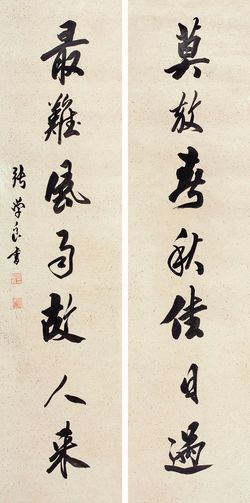 莫放春秋佳日過
最難風雨故人來
張學良書